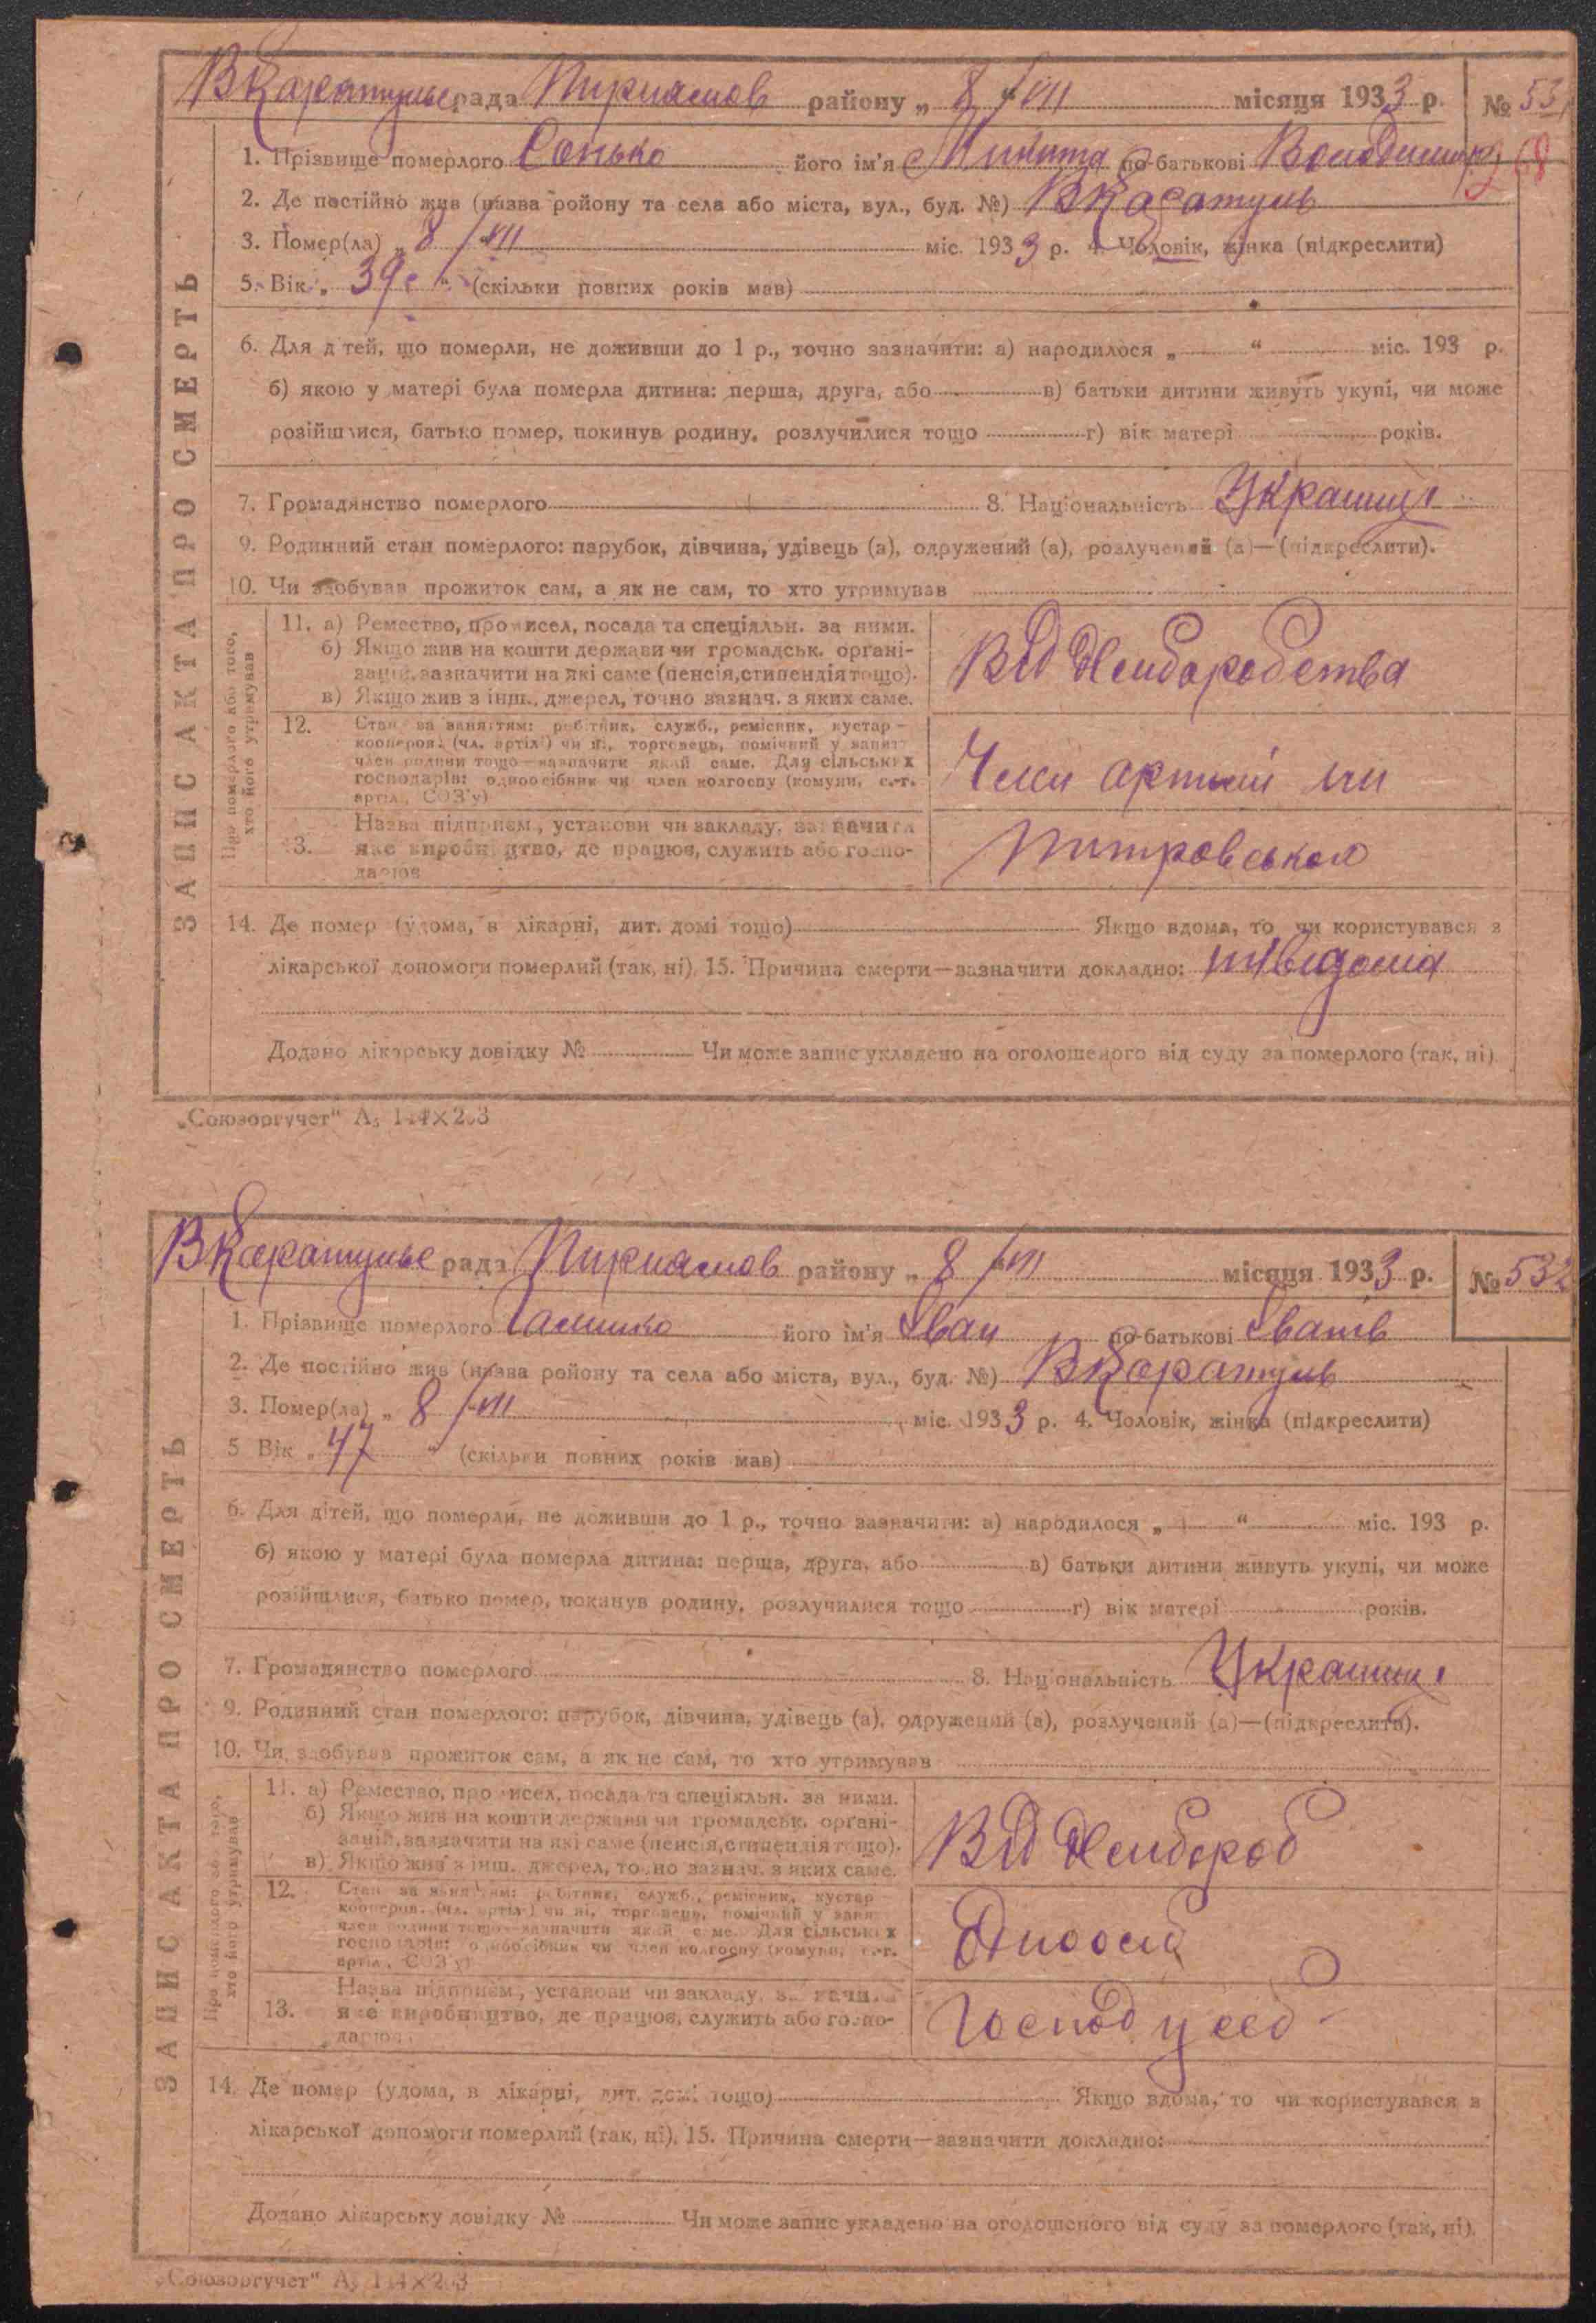 ЗАПИС АКТА ПРО СМЕРТЬ
ВКаратульс рада района „ 8 / VII місяця 1933 р. № 531
268
1. Прізвище померлого Сонько його ім'я Микита по-батькові
2. Де постійно жив (назва ройону та села або міста, вул., буд. №) ВКаратуль
3. Помер(ла) „ 8 / VII міс. 1933 р. 4. Чоловік, жінка (підкреслити)
5. Вік „ 39 “ (скільки повних років мав)
6. Для дітей, що померли, не доживши до 1 р., точно зазначити: а) народилося „ “ міс. 193 р.
б) якою у матері була померла дитина: перша, друга, або в) батьки дитини живуть укупі, чи може
розійшлися, батько помер, покинув родину, розлучилися тощо г) вік матері років.
7. Громадянство померлого 8. Національність Украинц
9. Родинний стан померлого: парубок, дівчина, удівець (а), одружений (а), розлучений (а)—(підкреслити).
10. Чи здобував прожиток сам, а як не сам, то хто утримував
Про померлого або того, хто його утримував
11. а) Ремество, промисел, посада та спеціяльн. за ними.
б) Якщо жив на кошти держави чи громадськ. органі-
зацій, зазначити на які саме (пенсія, стипендія тощо).
в) Якщо жив з інш. джерел, точно зазнач. з яких саме.
Від
12. Стан за заняттям: робітник, служб., ремісник, кустар -
кооперов. (чл. артілі) чи ні, торговець, помічний у занят
член родини тощо—назначити який саме. Для сільських
господарів: одноосібник чи член колгоспу (комуни, с.-г.
артіл., СОЗ'у)
Член артили
13. Назва підприєм., установи чи закладу, зазначити
яке виробництво, де працює, служить або госпо-
дарює
Питровського
14. Де помер (удома, в лікарні, дит. домі тощо) Якщо вдома, то чи користувався з
лікарської допомоги померлий (так, ні). 15. Причина смерти—зазначити докладно:
Додано лікарську довідку № Чи може запис укладено на оголошеного від суду за померлого (так, ні).
„Союзоргучет“ А5 144×203
ЗАПИС АКТА ПРО СМЕРТЬ
ВКаратульс рада району „ 8 / VII місяця 1933 р. № 532
1. Прізвище померлого його ім'я Іван по-батькові Іванів
2. Де постійно жив (назва ройону та села або міста, вул., буд. №) ВКаратуль
3. Помер(ла) „ 8 / VII міс. 1933 р. 4. Чоловік, жінка (підкреслити)
5 Вік „ 47 “ (скільки повних років мав)
6. Для дітей, що померли, не доживши до 1 р., точно зазначити: а) народилося „ “ міс. 193 р.
б) якою у матері була померла дитина: перша, друга, або в) батьки дитини живуть укупі, чи може
розійшлися, батько помер, покинув родину, розлучилися тощо г) вік матері років.
7. Громадянство померлого 8. Національність Украинц
9. Родинний стан померлого: парубок, дівчина, удівець (а), одружений (а), розлучений (а)—(підкреслити).
10. Чи здобував прожиток сам, а як не сам, то хто утримував
Про померлого або того, хто його утримував
11. а) Ремество, промисел, посада та спеціяльн. за ними.
б) Якщо жив на кошти держави чи громадськ. органі-
зацій, зазначити на які саме (пенсія, стипендія тощо).
в) Якщо жив з інш. джерел, точно зазнач. з яких саме.
Від
12. Стан за заняттям: робітник, служб., ремісник, кустар
кооперов. (чл. артілі) чи ні, торговець, помічний у занят
член родини тощо—зазначити який саме. Для сільських
господарів: одноосібник чи член колгоспу (комуни, с.-г.
артіл., СОЗ'у)
Одноосіб
13. Назва підприєм., установи чи закладу, зазначити
яке виробництво, де працює, служить або госпо-
дарює
Господ у себ
14. Де помер (удома, в лікарні, дит. домі тощо) Якщо вдома, то чи користувався з
лікарської допомоги померлий (так, ні). 15. Причина смерти—зазначити докладно:
Додано лікарську довідку № Чи може запис укладено на оголошеного від суду за померлого (так, ні).
„Союзоргучет“ А5 144×203